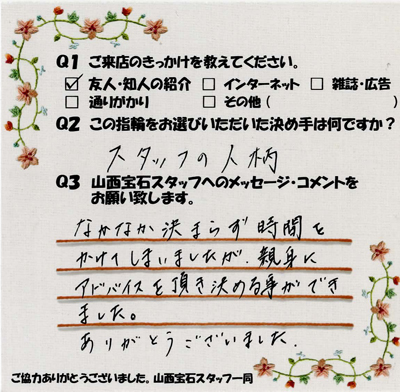 Q1 ご来店のきっかけを教えてください。
☑ 友人・知人の紹介 □ インターネット □ 雑誌・広告
□ 通りがかり □ その他 ( )
Q2 この指輪をお選びいただいた決め手は何ですか?
スタッフの人柄
Q3 山西宝石スタッフへのメッセージ・コメントを
お願い致します。
なかなか決まらず時間を
かけてしまいましたが、親身に
アドバイスを頂き決める事ができ
ました。
ありがとうございました.
ご協力ありがとうございました。山西宝石スタッフ一同